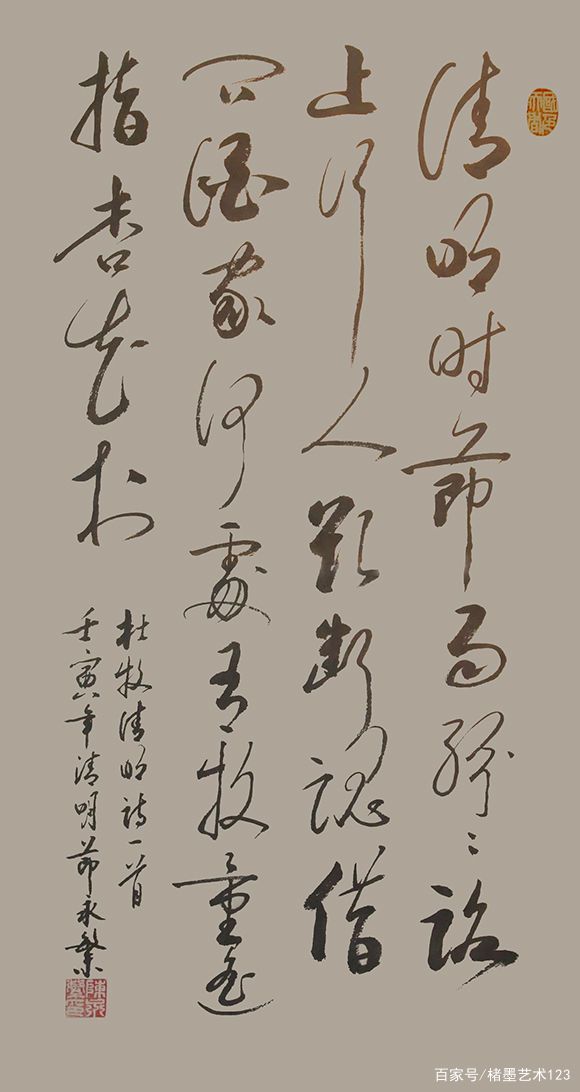 清明时節雨紛〻路
上行人欲断魂借
问酒家何處有牧童遥
指杏花村
杜牧清明詩一首
壬寅年清明節永繁
百家号/楮墨艺术123